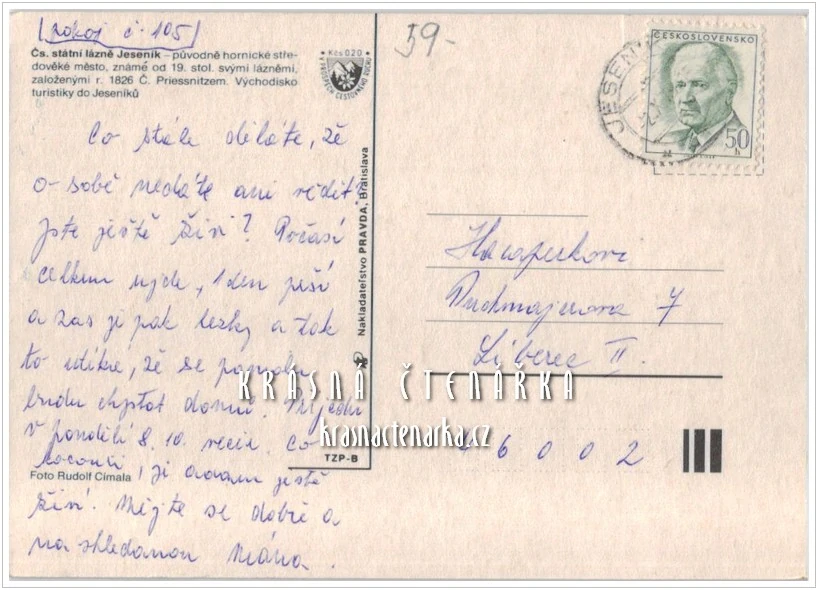 pokoj č. 105
Čs. státní lázně Jeseník – původně hornické stře-
dověké město, známé od 19. stol. svými lázněmi,
založenými r. 1826 Č. Priessnitzem. Východisko
turistiky do Jeseníků
Kčs 0,20
59-
JESENÍK
ČESKOSLOVENSKO
50
h
Co stále děláte, že
o sobě nedáte ani vědět?
Jste ještě živi? Počasí
celkem ujde, 1 den prší
a zas je pak hezky a tak
to utíká, že se pomalu
budu chystat domů. Přijedu
v pondělí 8. 10. večer. Co
kocouři, ji
ještě
živi. Mějte se dobře a
na shledanou Máňa.
Nakladatelstvo PRAVDA, Bratislava
TZP-B
Foto Rudolf Cimala
7
Liberec II.
46002
KRÁSNÁ ČTENÁŘKA
krasnactenarka.cz